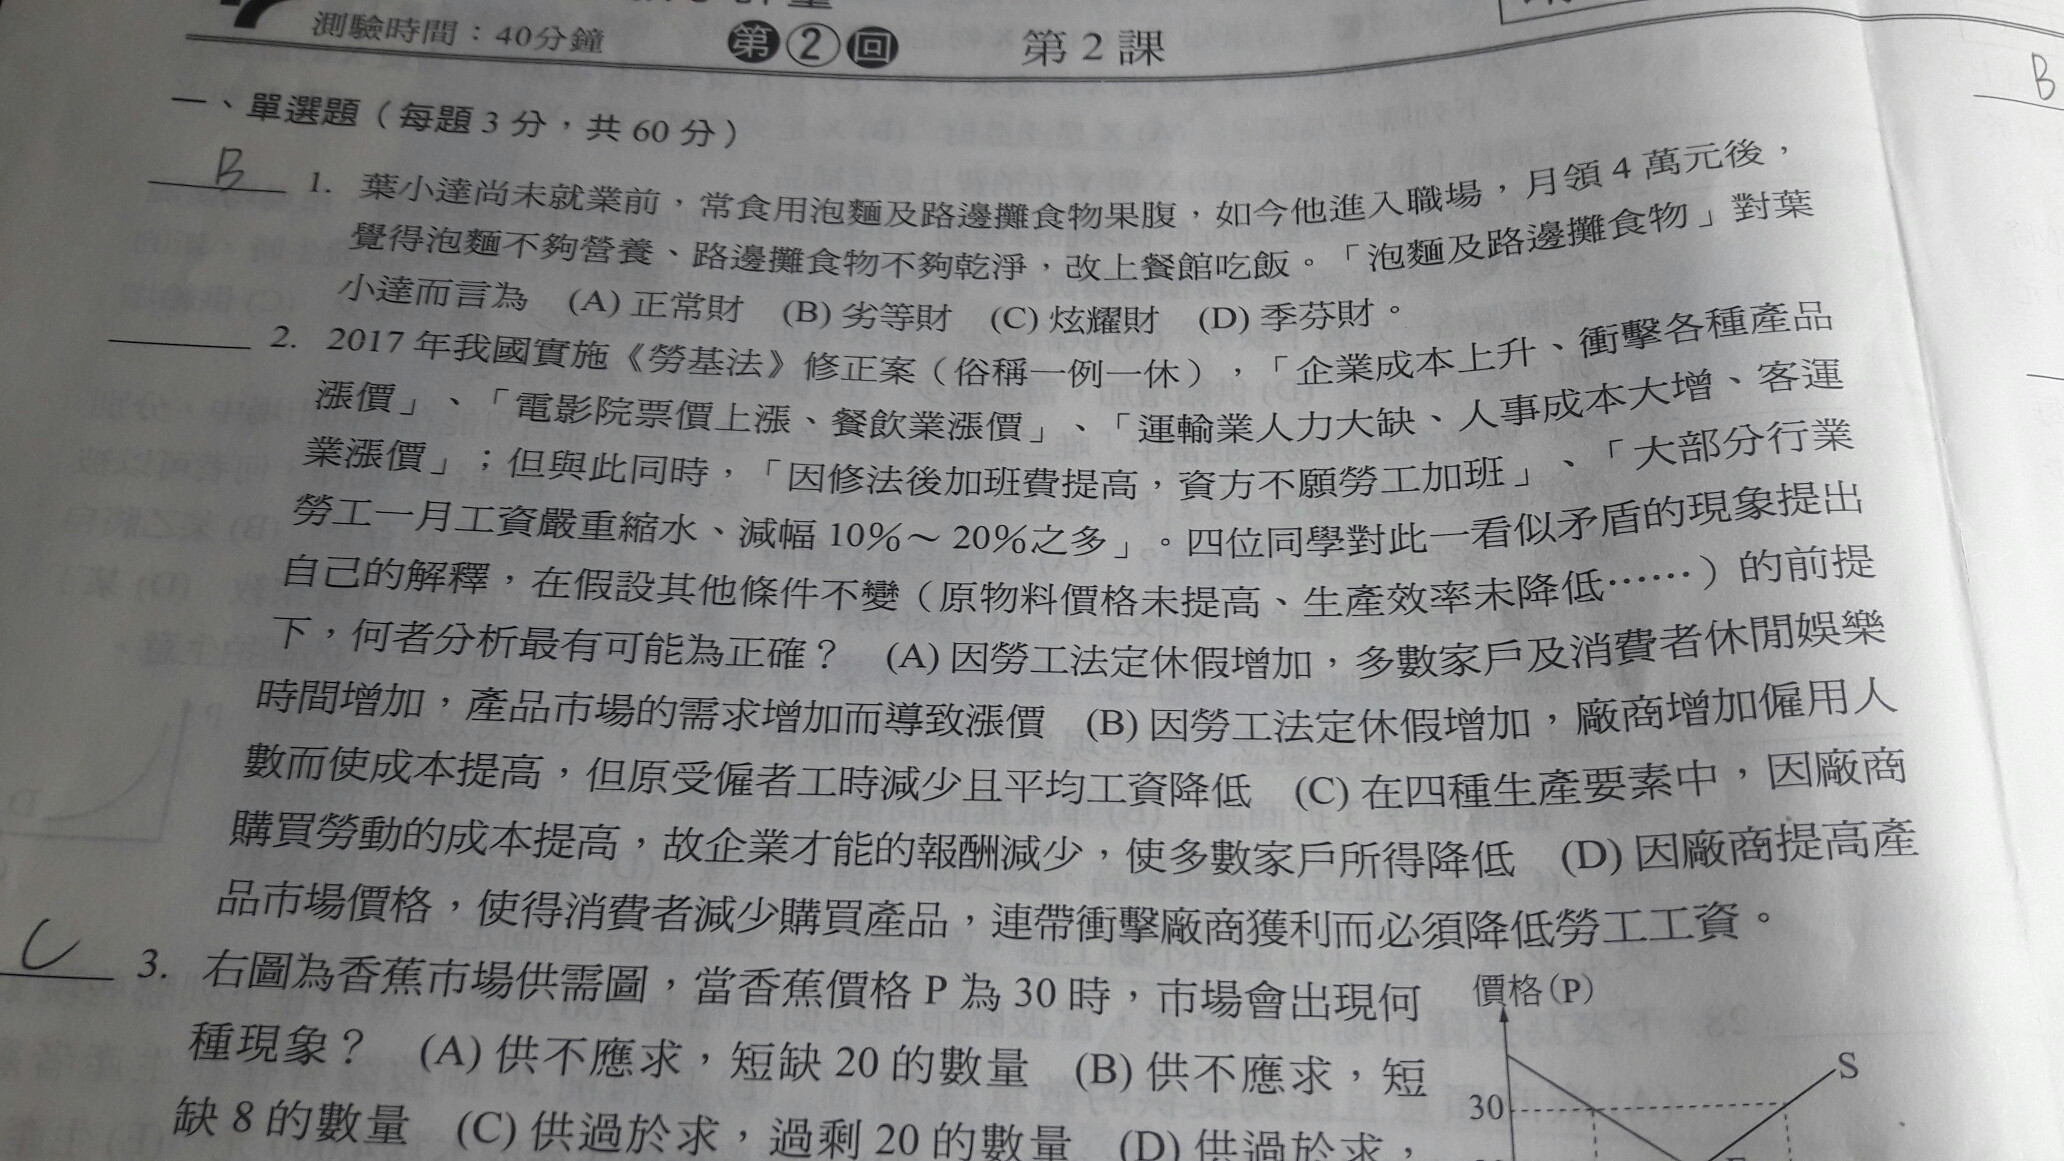 測驗時間：40分鐘
第②回
第2課
B
一、單選題（每題3分，共60分）
B 1. 葉小達尚未就業前，常食用泡麵及路邊攤食物果腹，如今他進入職場，月領4萬元後，
覺得泡麵不夠營養、路邊攤食物不夠乾淨，改上餐館吃飯。「泡麵及路邊攤食物」對葉
小達而言為 (A)正常財 (B)劣等財 (C)炫耀財 (D)季芬財。
2. 2017年我國實施《勞基法》修正案（俗稱一例一休），「企業成本上升、衝擊各種產品
漲價」、「電影院票價上漲、餐飲業漲價」、「運輸業人力大缺、人事成本大增、客運
業漲價」；但與此同時，「因修法後加班費提高，資方不願勞工加班」、「大部分行業
勞工一月工資嚴重縮水、減幅10%～20%之多」。四位同學對此一看似矛盾的現象提出
自己的解釋，在假設其他條件不變（原物料價格未提高、生產效率未降低……）的前提
下，何者分析最有可能為正確？ (A)因勞工法定休假增加，多數家戶及消費者休閒娛樂
時間增加，產品市場的需求增加而導致漲價 (B)因勞工法定休假增加，廠商增加僱用人
數而使成本提高，但原受僱者工時減少且平均工資降低 (C)在四種生產要素中，因廠商
購買勞動的成本提高，故企業才能的報酬減少，使多數家戶所得降低 (D)因廠商提高產
品市場價格，使得消費者減少購買產品，連帶衝擊廠商獲利而必須降低勞工工資。
C 3. 右圖為香蕉市場供需圖，當香蕉價格P為30時，市場會出現何
種現象？ (A)供不應求，短缺20的數量 (B)供不應求，短
缺8的數量 (C)供過於求，過剩20的數量 (D)供過於求，
價格(P)
S
30